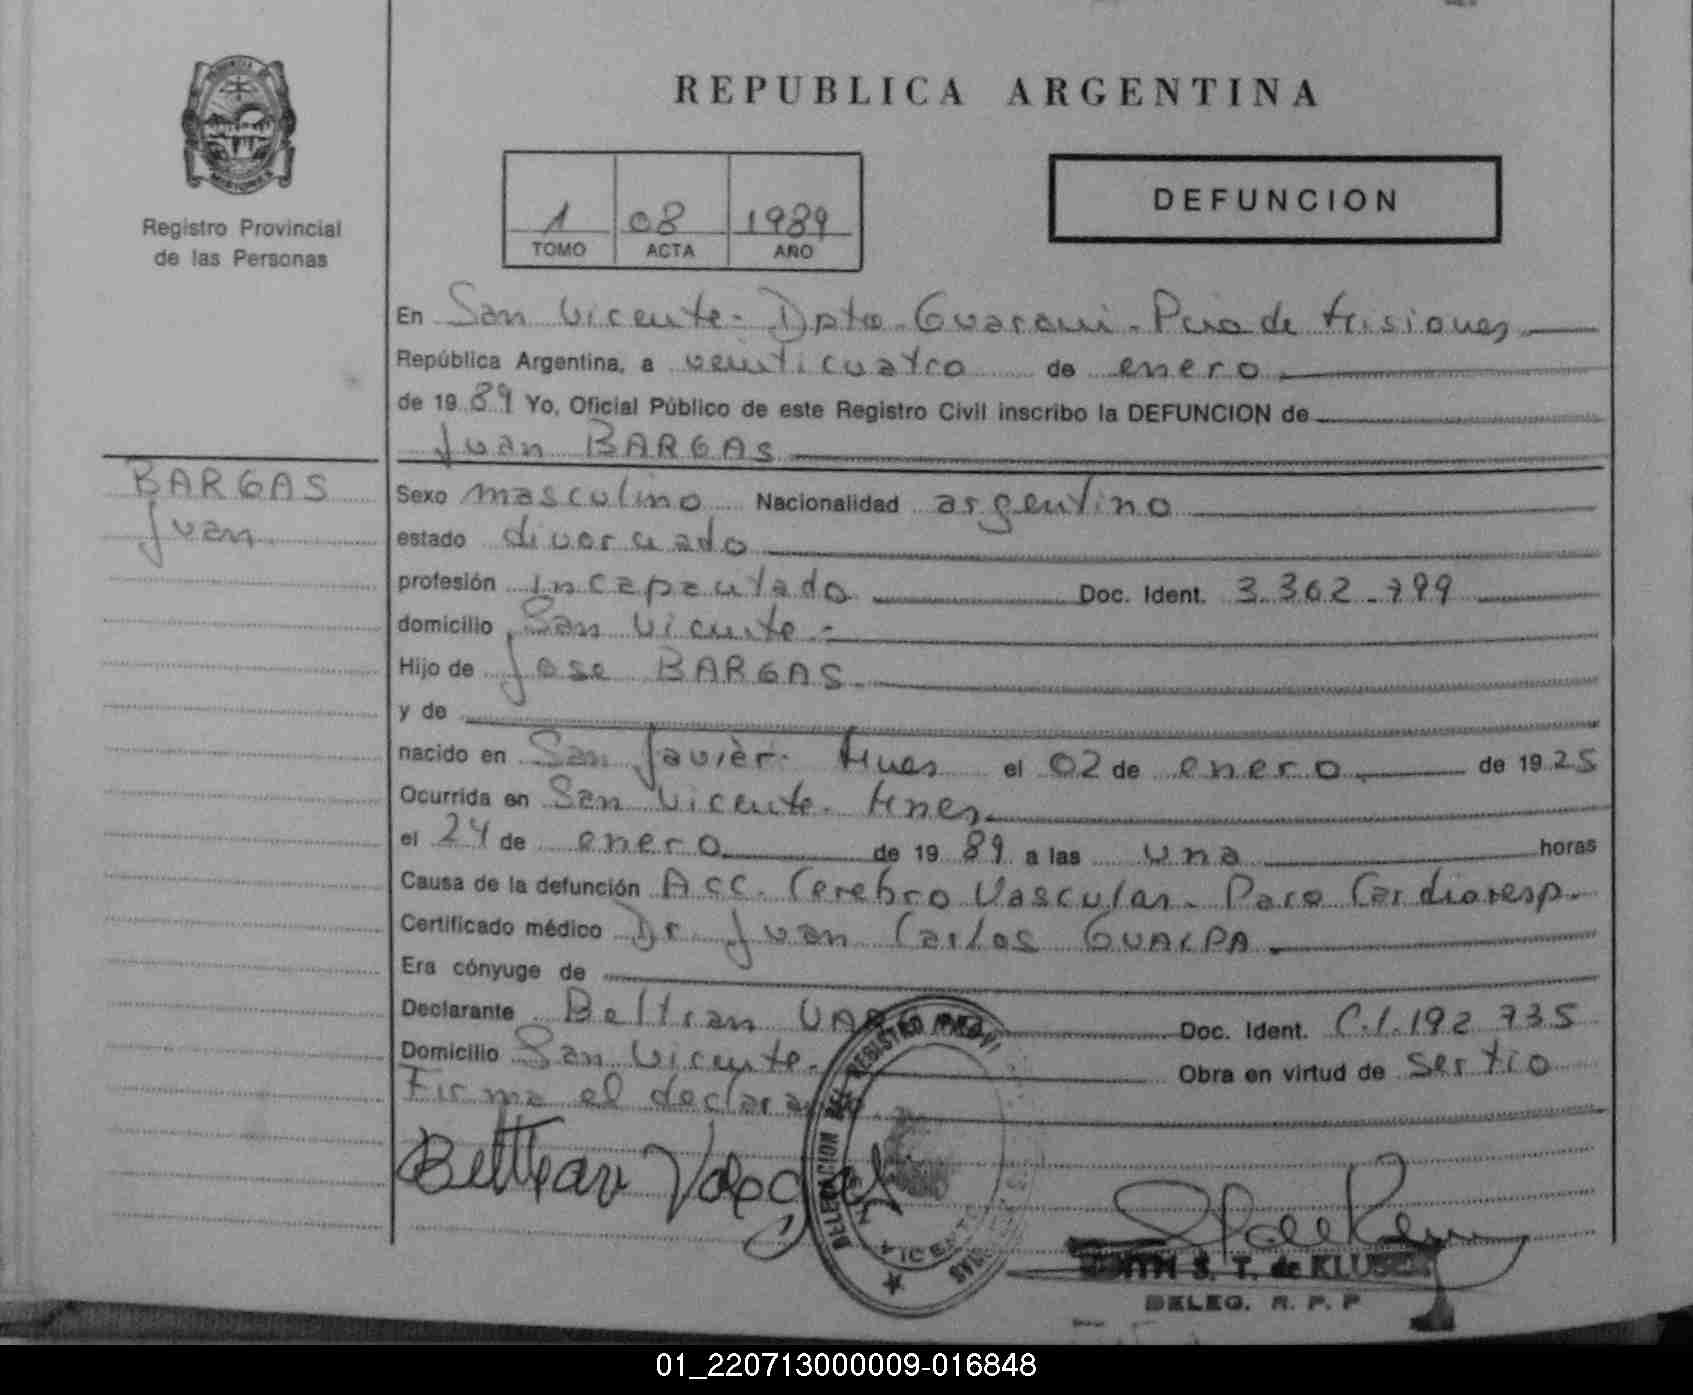 REPUBLICA ARGENTINA
Registro Provincial
de las Personas
1 08 1989
TOMO ACTA AÑO
DEFUNCION
En San Vicente - Dpto. Guarani - Pcia de Misiones
República Argentina, a veinticuatro de enero
de 19 89 Yo, Oficial Público de este Registro Civil inscribo la DEFUNCION de
Juan BARGAS
BARGAS
Juan
Sexo masculino Nacionalidad argentino
estado divorciado
profesión incapacitado Doc. Ident. 3.362.799
domicilio San Vicente.-
Hijo de Jose BARGAS
y de
nacido en San Javier - Mnes el 02 de enero de 19 25
Ocurrida en San Vicente - Mnes
el 24 de enero de 19 89 a las una horas
Causa de la defunción Acc. Cerebro Vascular. Paro Cardioresp.
Certificado médico Dr. Juan Carlos GUALPA
Era cónyuge de
Declarante Beltran Doc. Ident. C.I. 192.735
Domicilio San Vicente. Obra en virtud de ser tio
Firma el
Beltran
DELEGACION DEL REGISTRO
VICENTE
S. T. de
DELEG. R. P. P
01_220713000009-016848